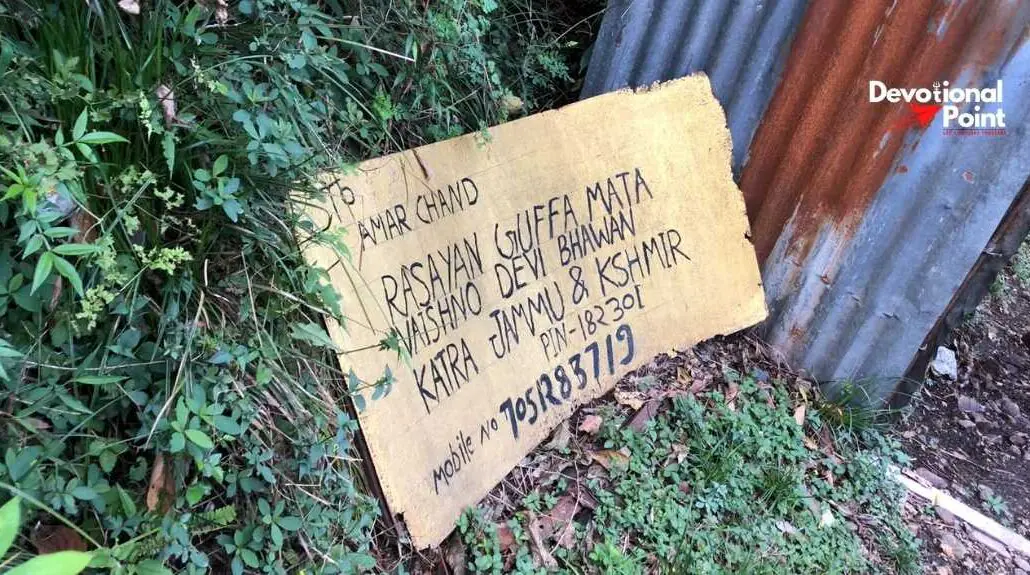 To
AMAR CHAND
RASAYAN GUFFA MATA
VAISHNO DEVI BHAWAN
KATRA JAMMU & KSHMIR
PIN-182301
mobile NO 7051283719
Devotional
Point